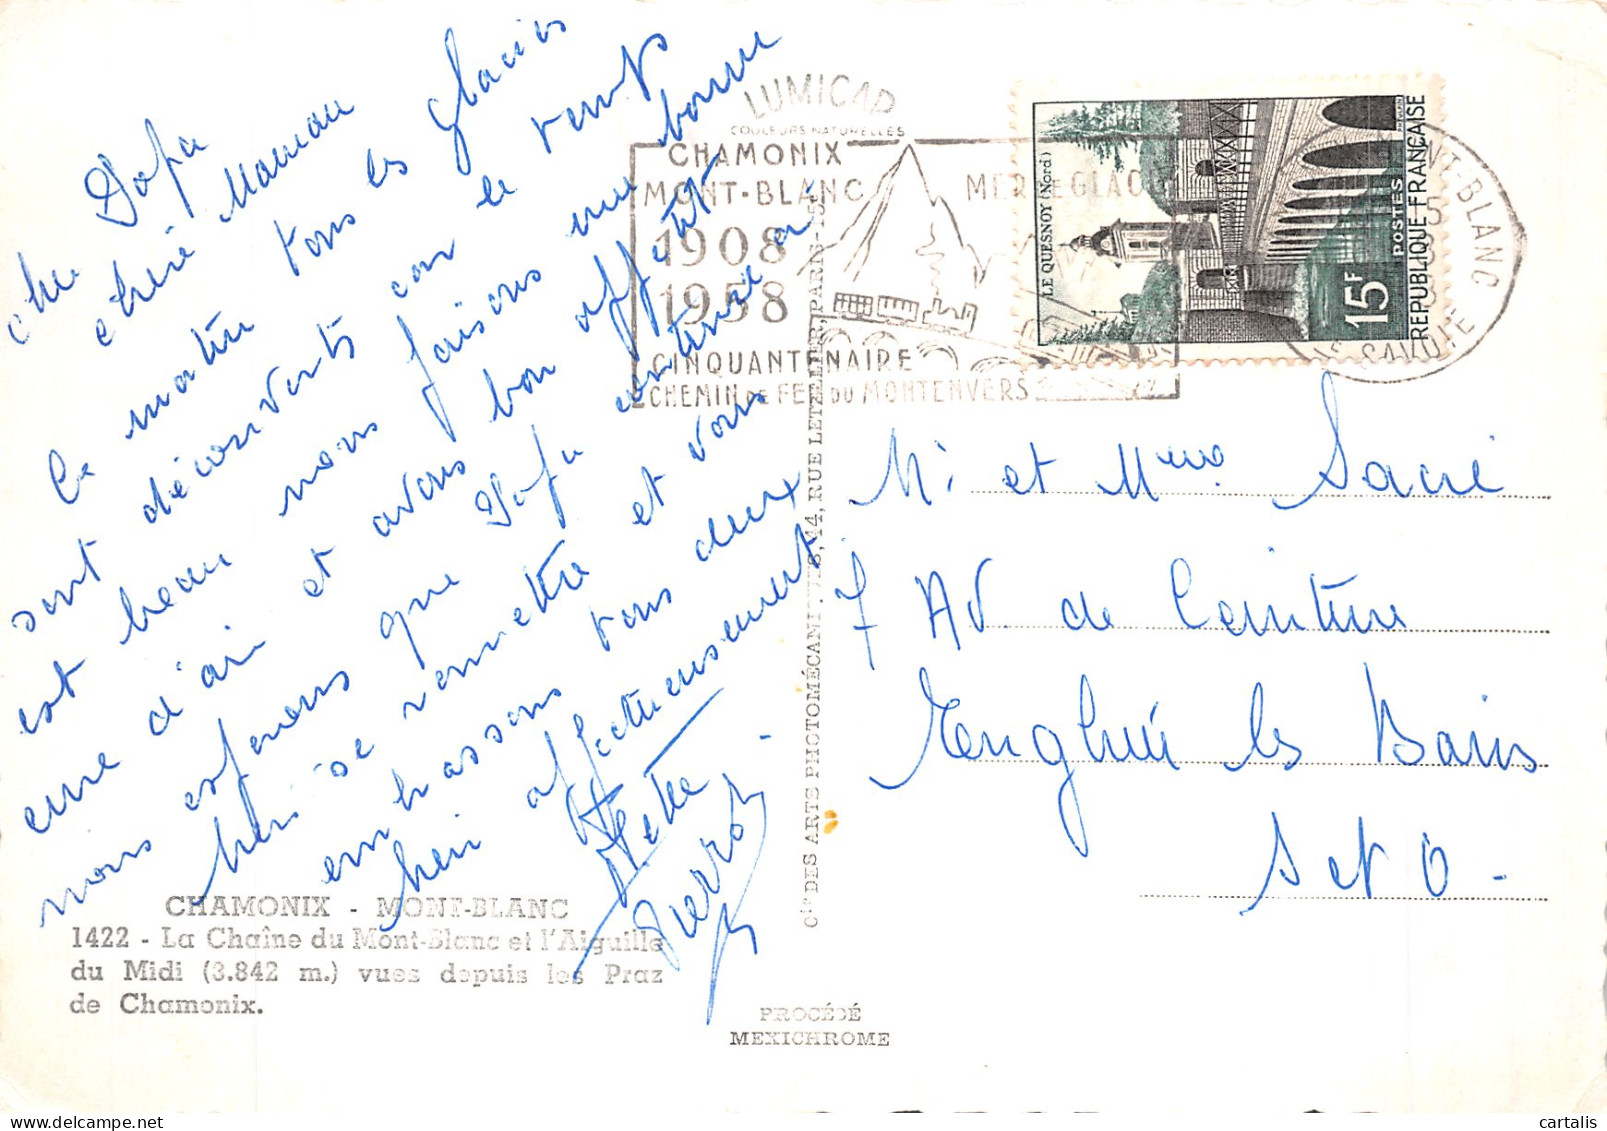 cher Papa
chère Maman
Ce matin tous les glaciers
sont découverts car le temps
est beau nous faisons une bonne
cure d'air et avons bon appétit
nous espérons que Papa continue à
bien se remettre et vous
embrassons tous deux
bien affectueusement
Pierrot
LUMICAP
COULEURS NATURELLES
CHAMONIX
MONT-BLANC
1908
1958
MER DE GLACE
CINQUANTENAIRE
CHEMIN DE FER DU MONTENVERS
LE QUESNOY (Nord)
15F
POSTES
REPUBLIQUE FRANÇAISE
MONT-BLANC
SAVOIE
Mr et Mme Sacré
7 Av. de Ceinture
Enghien les Bains
S et O -
Cie DES ARTS PHOTOMÉCANIQUES, 44, RUE LETELLIER, PARIS-15e
CHAMONIX - MONT-BLANC
1422 - La Chaîne du Mont-Blanc et l'Aiguille
du Midi (3.842 m.) vues depuis les Praz
de Chamonix.
PROCÉDÉ
MEXICHROME
cartalis